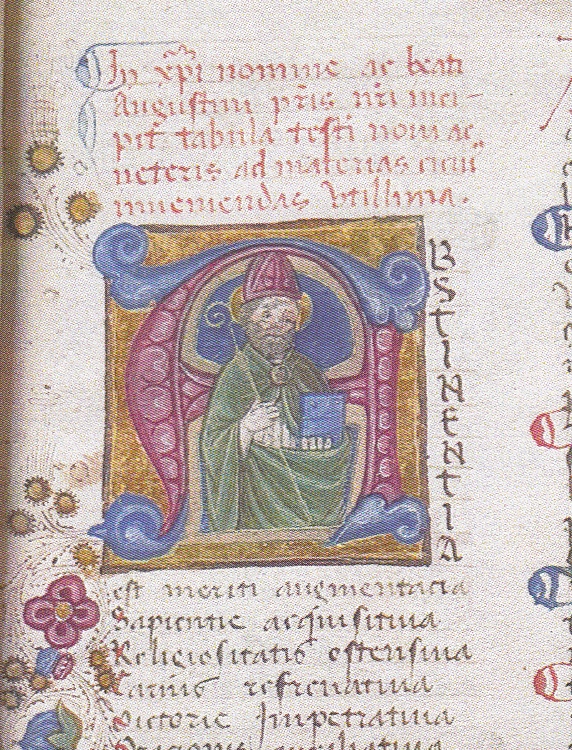 In xp̄i nomine ac beati
Augustini pr̄is nr̄i inci-
pit tabula
ueteris ad materias
inueniendas vtillima.
ABSTINENTIA
est meriti augmentatiua
Sapientie acquisitiua
Religiositatis ostensiua
Carnis refrenatiua
Victorie Impetratiua